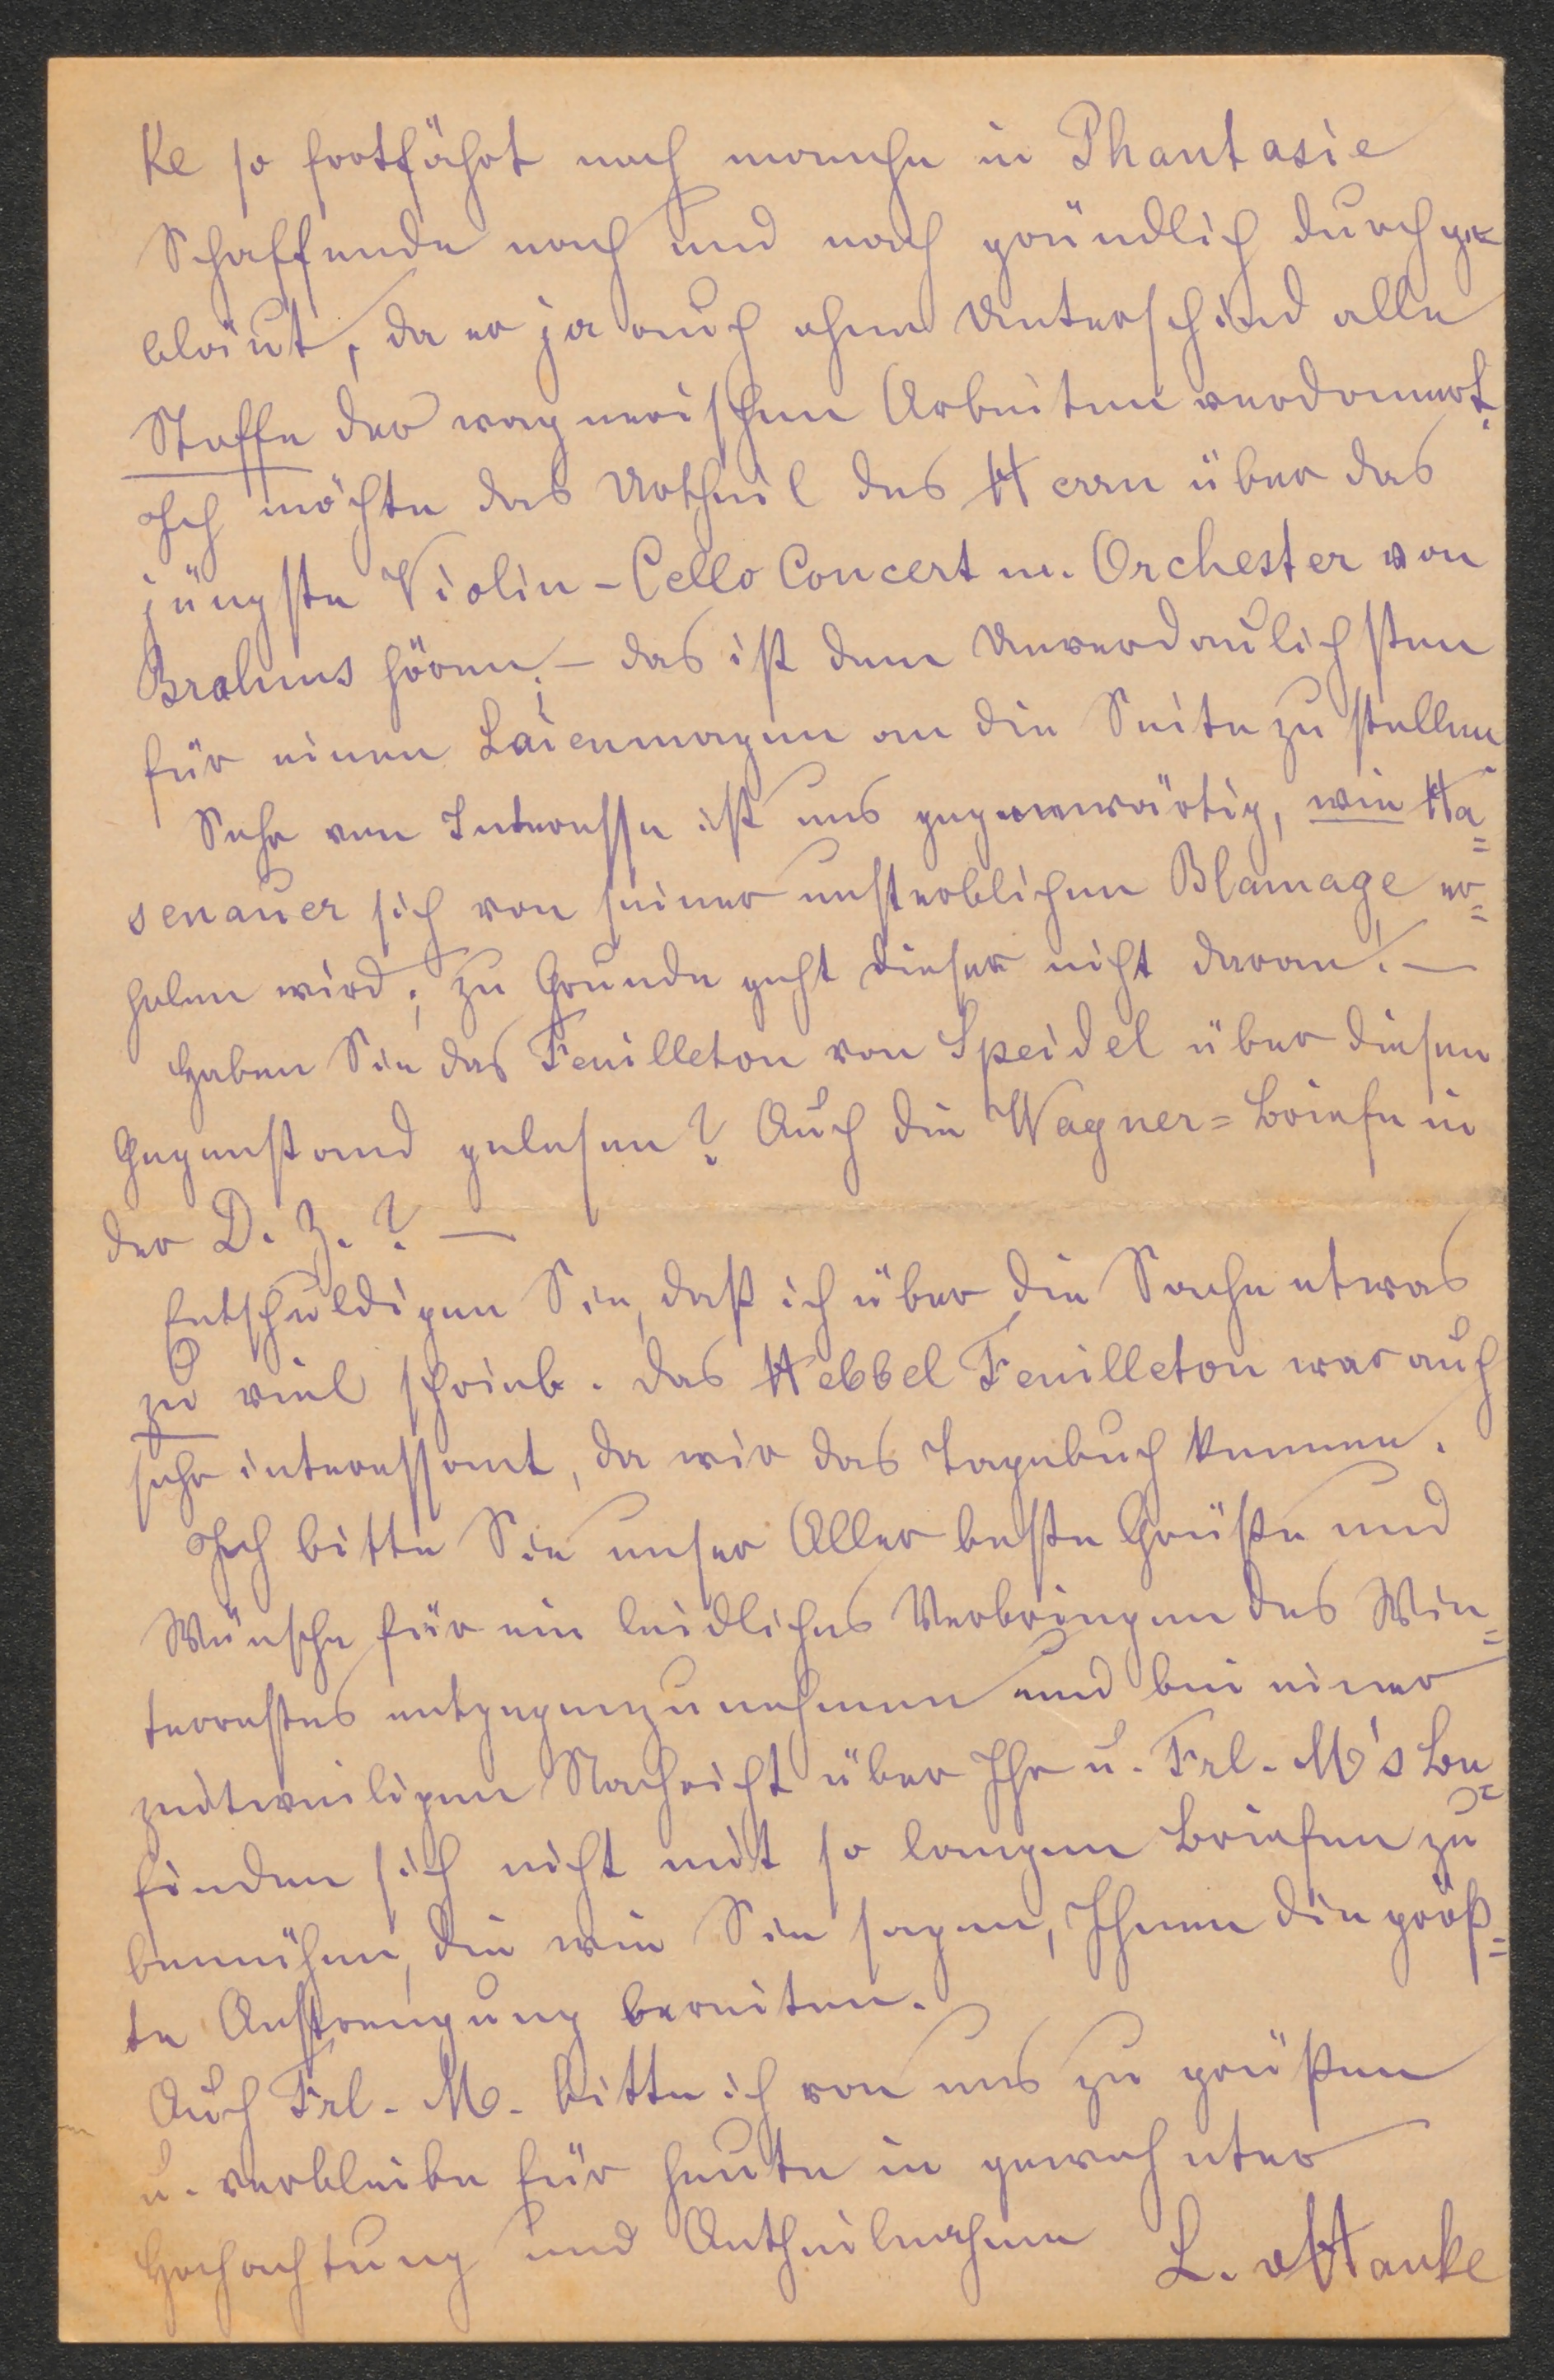 ke so fortfährt noch manche in Phantasie
Schaffende nach und nach gründlich durchge=
bläut, da er ja auch ohne Unterschied alle
Stoffe der wagnerischen Arbeiten verdonnert.
Ich möchte das Urtheil des Herrn über das
jüngste Violin-Cello Concert m. Orchester von
Brahms hören; – das ist dem Unverdaulichsten
für einen Laienmagen an die Seite zu stellen
Sehr von Interesse ist uns gegenwärtig, wie Ha=
senauer sich von seiner unsterblichen Blamage er=
holen wird; zu Grunde geht dieser nicht daran! —
Haben Sie das Feuilleton von Speidel über diesen
Gegenstand gelesen? Auch die Wagner=Briefe in
der D. Z. ? —
Entschuldigen Sie, daß ich über die Sache etwas
zu viel schrieb. Das Hebbel Feuilleton war auch
sehr interessant, da wir das Tagebuch kennen.
Ich bitte Sie unser Aller beste Grüße und
Wünsche für ein leidliches Verbringen des Win=
terrestes entgegenzunehmen und bei einer
zeitweiligen Nachricht über Ihr u. Frl. M's Be=
finden sich nicht mit so langen Briefen zu
bemühen, die wie Sie sagen, Ihnen die größ=
te Anstrengung bereiten.
Auch Frl. M. bitte ich von uns zu grüßen
u. verbleibe für heute in gewohnter
Hochachtung und Antheilnahme L. v Hanke